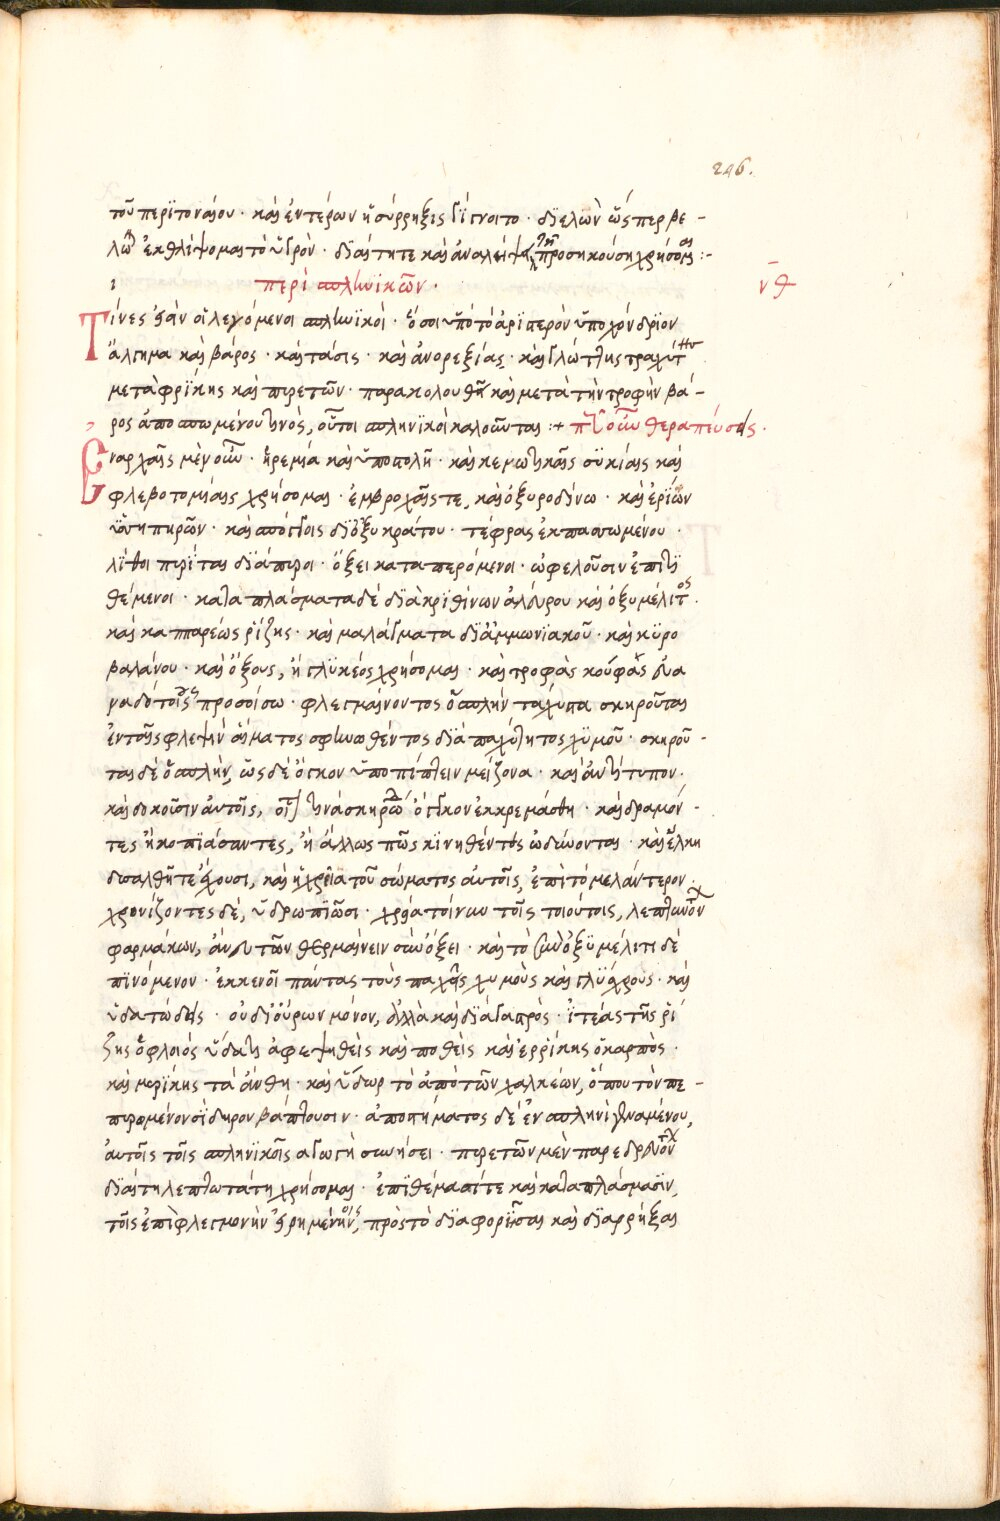 246.
τοῦ περϊτοναίου · καὶ ἐντέρων ἡ σύρρηξις γίγνοιτο · δϊελὼν ὥσπερ βε -
λῶ ἐκθλίψομαι τὸ ὑγρὸν · διαίτητε καὶ ἀναλείψει τῆ προσηκούση χρήσομαι :-
περὶ σπληνϊκῶν · νθ
Τίνες εἰσὰν οἱ λεγόμενοι σπληνϊκοὶ · ὅσοι ὑπὸ τὸ ἀρϊστερὸν ὑποχόνδρϊον
ἄλγημα καὶ βάρος · καὶ τάσις · καὶ ἀνορεξίας · καὶ γλώττης τραχύτην
μετὰ φρίκης καὶ πυρετῶν · παρακολουθῆ καὶ μετὰ τὴν τροφὴν βά -
ρος ἀπὸ σπωμένου τινὸς, οὗτοι σπληνϊκοὶ καλοῦνται :+ πῶς οὖν θεραπεύσεις ·
Ἐν ἀρχαῖς μὲν οὖν · ἠρεμία καὶ ὑποστολῆ · καὶ κενωτικαῖς σϋκίαις καὶ
φλεβοτομίαις χρήσομαι · ἐμβροχαῖς τε, καὶ ὀξυροδίνω · καὶ ἐρίων
οἰνηπηρῶν · καὶ σπόγγοις δϊ ὀξυκράτου · τέφρας ἐκ πασπωμένου ·
λίθοι πυρίται δϊάπυροι · ὄξει καταπερόμενοι · ὠφελοῦσιν ἐπιτϊ
θέμενοι · καταπλάσματα δὲ δϊὰ κριθίνων ἀλεύρου καὶ ὀξυμέλιτος ·
καὶ καππαρέως ῥίζης · καὶ μαλάγματα δϊ ἀμμωνϊακοῦ · καὶ κϋρο
βαλάνου · καὶ ὄξους, ἢ γλϋκέος χρήσομαι · καὶ τροφὰς κούφας εὐα
ναδότοις προσοίσω · φλεγμαίνοντος ὁ σπλὴν ταχύπα σκηροῦται
ἐν ταῖς φλεψὶν αἵματος σφηνωθέντος δϊὰ παχύτητος χϋμοῦ · σκηροῦ -
ται δὲ ὁ σπλὴν, ὡς δὲ ὄγκον ὑποπίπτειν μείζονα · καὶ ἀντίτυπον ·
καὶ δοκοῦσιν αὐτοῖς, οἷον τινὰ σκηρώδ ὄγκον ἐκκρεμάσθη · καὶ δραμόν -
τες ἢ κοπϊάσαντες, ἢ ἄλλως πῶς κϊνηθέντες ὠδύνονται · καὶ ἕλκη
δυσαλθῆ τε ἔχουσι, καὶ ἡ χρεία τοῦ σώματος αὐτοῖς, ἐπὶ τὸ μελάντερον ·
χρονίζοντες δὲ, ὑδρωπϊῶσι · χρὴ τοίνυν τοῖς τοιούτοις, λεπτυνόντ
φαρμάκων, ἄνευ τῶν θερμαίνειν σὺν ὄξει · καὶ τὸ σὺν ὀξϋμέλιτι δὲ
πϊνόμενον · ἐκκενοῖ πάντας τοὺς παχεῖς χυμοὺς καὶ γλϋχρους · καὶ
ὑδατώδεις · οὐ δϊ οὔρων μόνον, ἀλλὰ καὶ δϊὰ γαστρὸς · ἰτέας τῆς ῥί
ζης ὁ φλοιὸς ὕδατι ἀφεψηθεὶς καὶ ποθεὶς καὶ ἐρρίκης ὁ καρπὸς ·
καὶ μυρϊκης τὰ ἄνθη · καὶ ὕδωρ τὸ ἀπὸ τῶν χαλκέων, ὅπου τὸν πε -
πυρωμένον σίδηρον βάπτουσιν · ἀποστήματος δὲ ἐν σπληνὶ γεναμένου,
αὐτοῖς τοῖς σπληνϊκοῖς ἀγωγὴ συνήσει · πυρετῶν μὲν παρεδρευόντ
δϊαίτη λεπτωτάτη χρήσομαι · ἐπϊθέμασί τε καὶ καταπλάσμασϊν,
τοῖς ἐπὶ φλεγμονὴν εἰρημένοις, πρὸς τὸ δϊαφορῆσαι καὶ δϊαρρήξαι